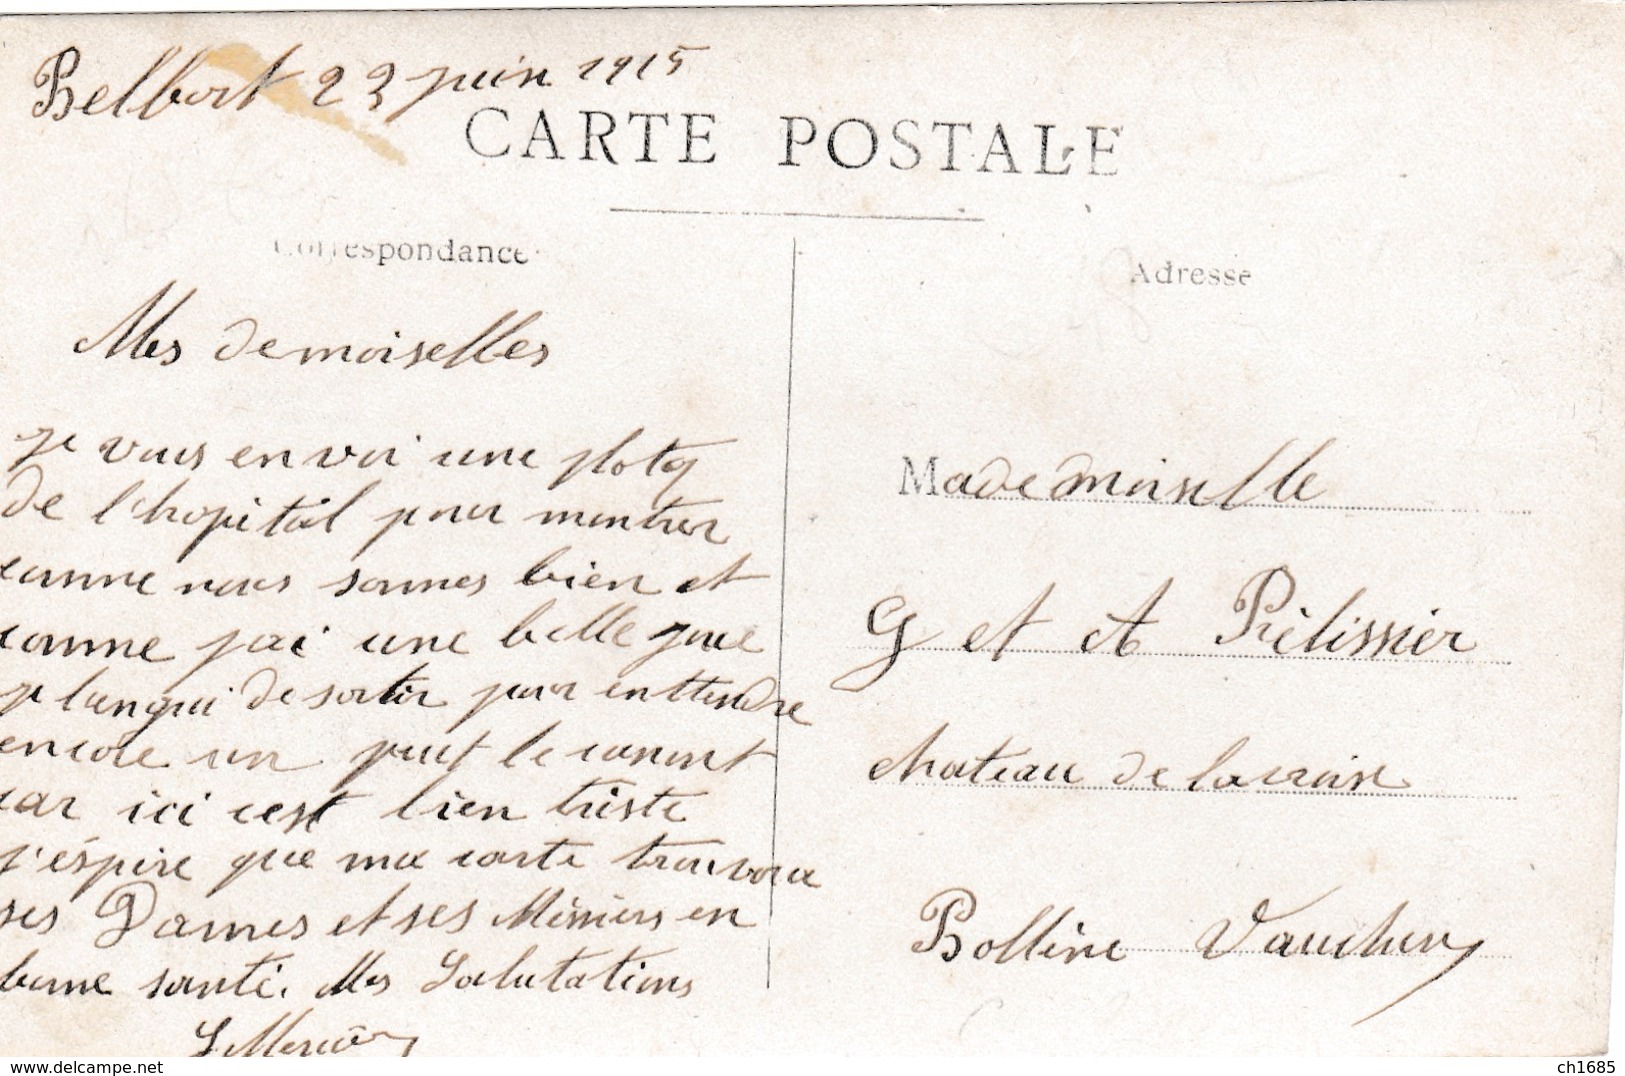 Belbort 23 juin 1915
CARTE POSTALE
Correspondance
Adresse
Mes demoiselles
je vous envoi une photo
de l'hopital pour montrer
comme nous sommes bien et
comme j'ai une belle joue
je langui de sortir pour enttendre
encore un peut le canont
car ici cest bien triste
j'éspire que ma carte trouvera
ses Dames et ses Méssiers en
bonne santé. Mes Salutations
Mademoiselle
G et A Pélissier
chateau de lacroix
Bollène Vaucluse
ch1685